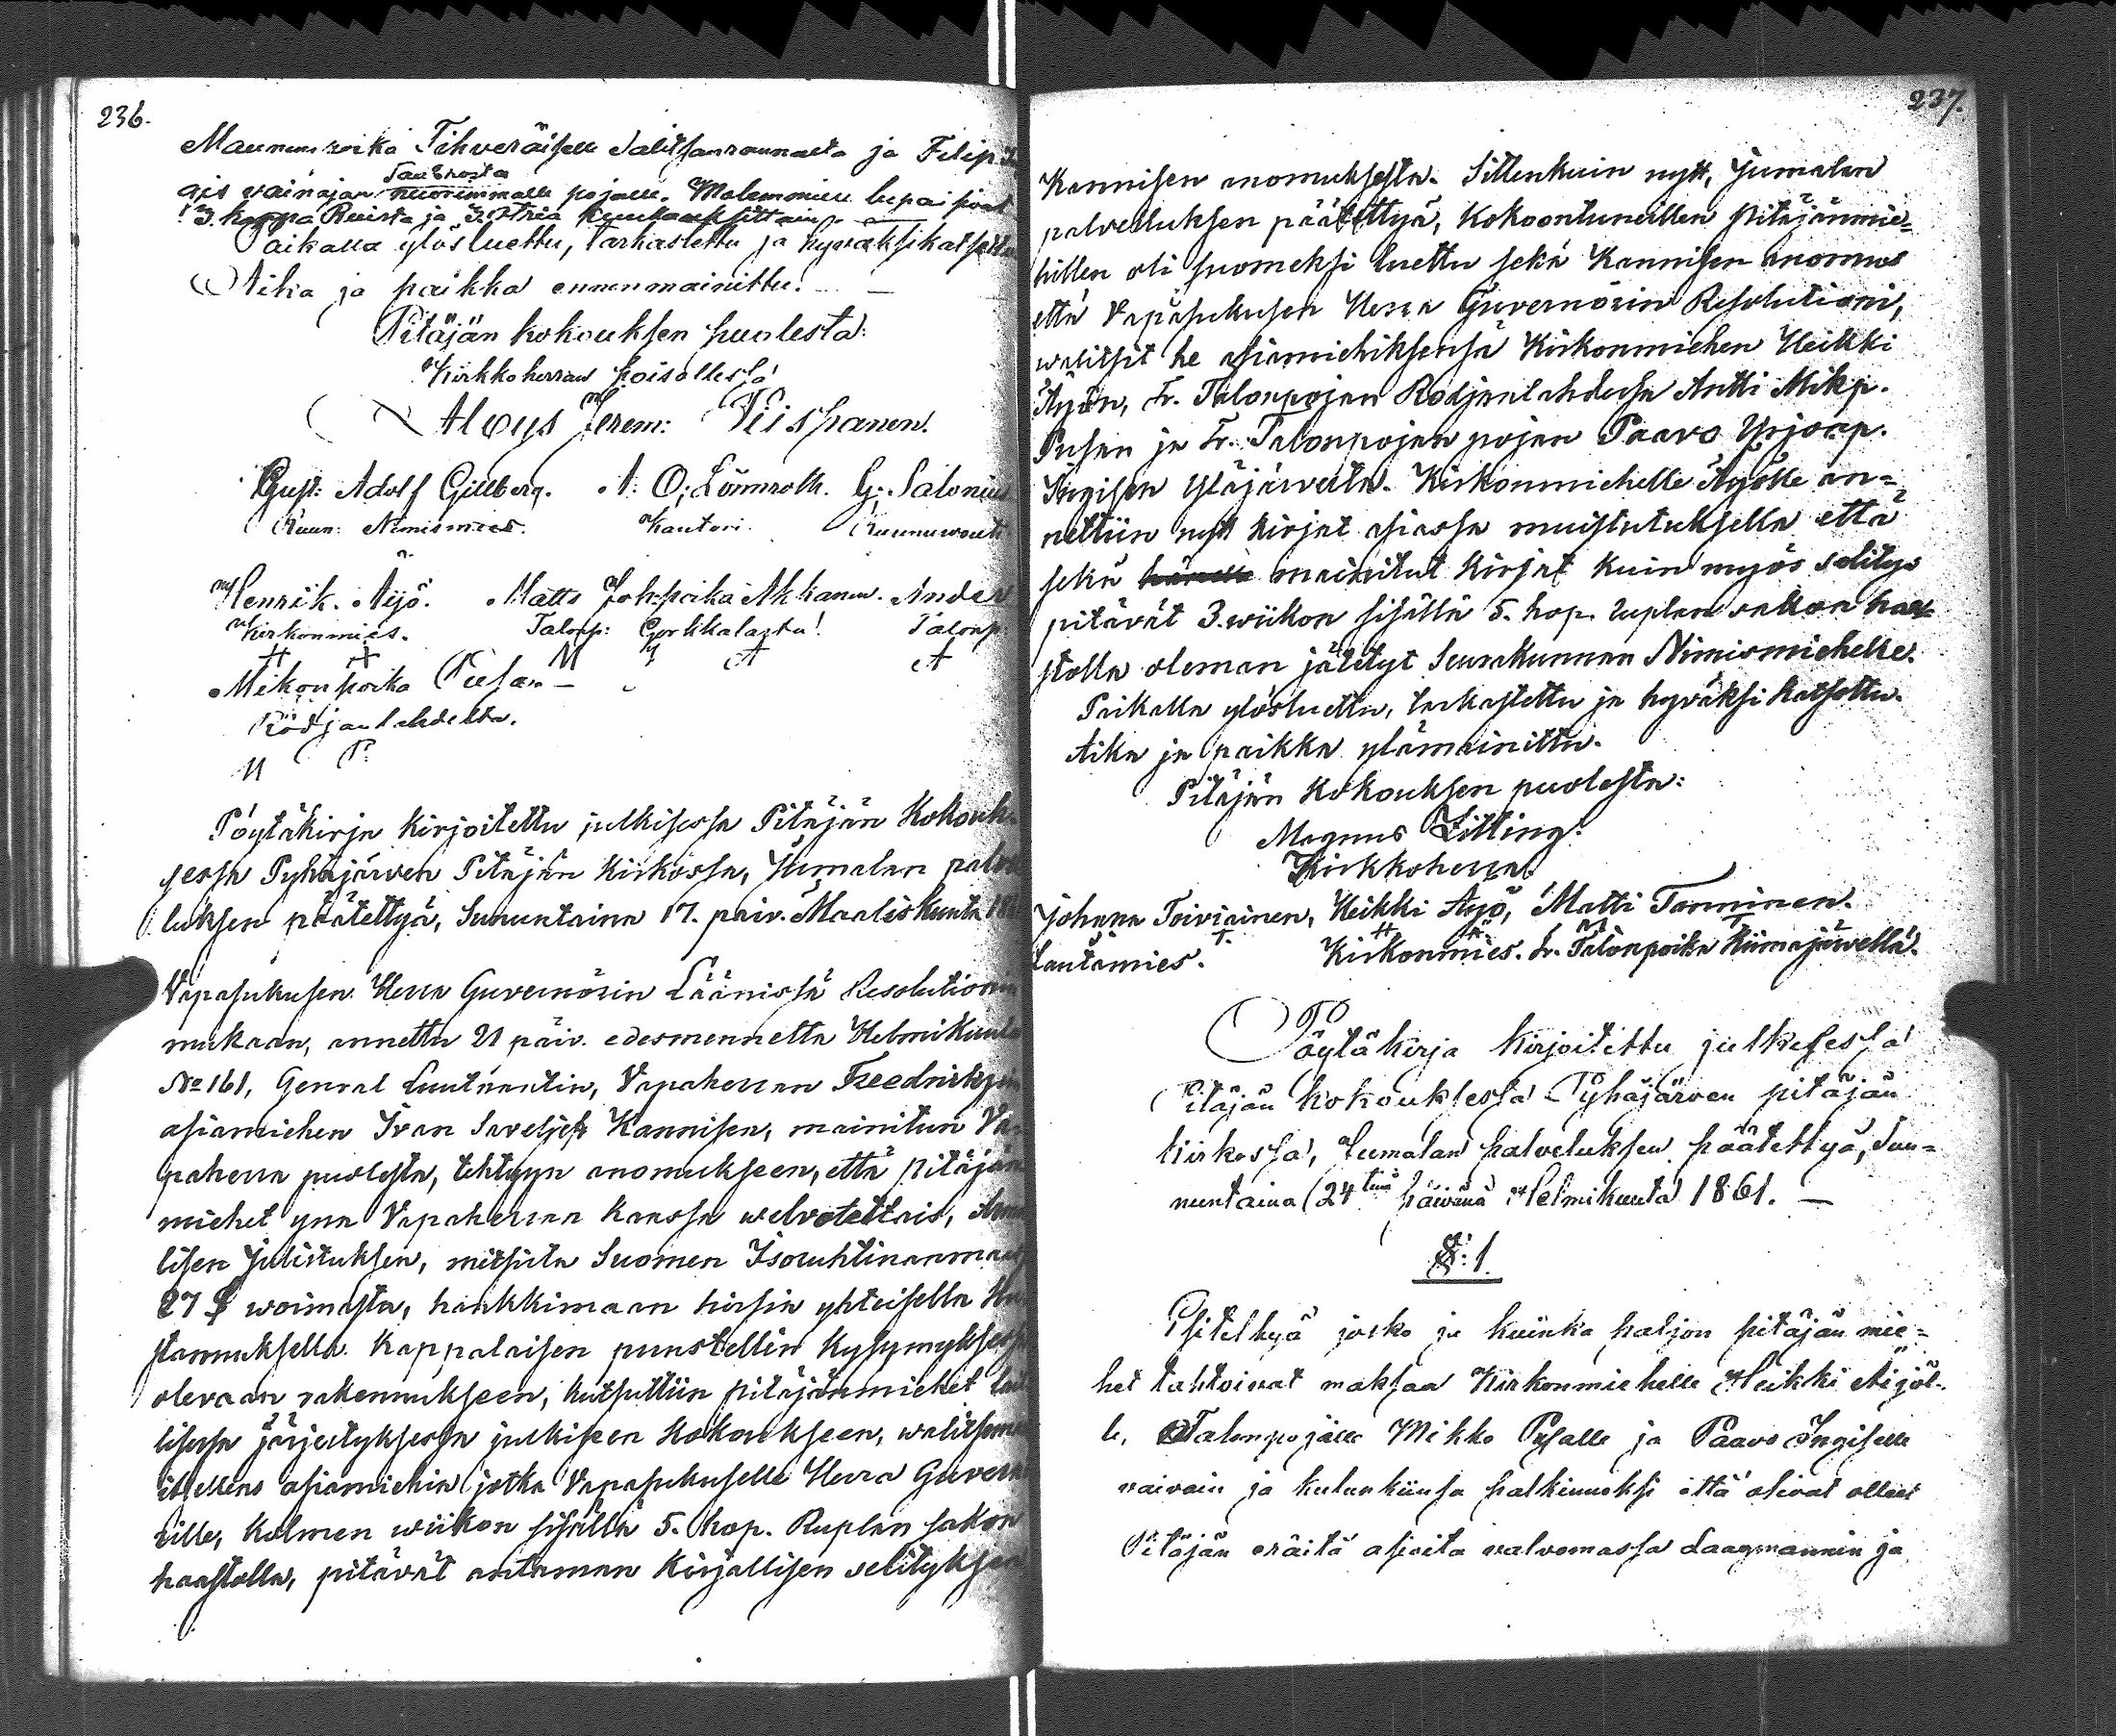 236.
Maununpoika Tihveräiselle Salitsanrannalta ja Filip
Taubrosta
gis vainajan nuoremmalle pojalle. Molemmille lupaisivat
! I. kappa Ruista ja I. Otria kuukauksittain. —
Paikalla ylösluettu, tarkastettu ja hyväksikatsottu
Aika ja paikka ennenmainittu. —
Pitäjän kokouksen puolesta:
Kirkkoherran poisollessa!
Aloys Jerem: Tiispanen.
Gust: Adolf Gillberg. A: O: Lönnroth. G: Salonius
Ruun: Nimismies. Kanttori. Ruunuwouti
Henrik. Äijö. Matts Joh:poika Akkanen. Ander
Kirkonmies. Talonp: Gorkkalasta! Talonp
H Ä M I A A
Mikonpoika Pusan —
Rödjanlahdelta.
M P.
Pöytäkirja kirjoitettu julkisessa Pitäjän Kokouk-
sessa Pyhäjärven Pitäjän Kirkossa, Jumalan palve
luksen päätettyä, Sunnuntaina 17. päiv. Maaliskuuta 18
Vapasukusen Herra Guvernörin Läänissä Resolutionin
mukaan, annettu 21 päiv. edesmennettä Helmikuuta
No 161, General Luutnantin, Vapaherran Freedricksin
asiamiehen Ivan Saveljeff Kannisen, mainitun Va-
paherra puolesta, tehtyyn anomukseen, että pitäjän
miehet ynn Vapaherran kanssa welvotettais, Arm
lisen Julistuksen, metsistä Suomen Isoruhtinanmaas
27 § woimasta, hankkimaan hirsin yhteisellä Ku
stannuksella. Kappalaisen puustellin Kysymykses
olevaan rakennukseen, kutsuttiin pitäjänmiehet lail
lisessa järjestyksessä julkiseen Kokoukseen, walitsem
itsellens asiamiehin jotka Vapasukuselle Herra Guver
rille, kolmen wiikon sisällä 5. hop. Ruplan sakon
haastolla, pitävät antaman Kirjallisen selityksen
237.
Kannisen anomuksesta. Sittenkuin nytt, Jumalan
palveluksen päätettyä, Kokoontuneillen pitäjänmie-
hillen oli suomeksi luettu sekä Kannisen anomus
että Vapasukusen Herra Guvernörin Resolutioni,
walitsit he asiamiehiksensä Kirkonmiehen Heikki
Äyön, Fr. Talonpojan Rodjanlahdesta Antti Mikp.
Pusan ja Fr. Talonpojan pojan Paavo Yrjönp.
Ingisen Yläjärveltä. Kirkonmiehelle Äyölle an-
nettiin nytt kirjat asiassa muistutuksella että
sekä mainitut kirjat kuin myös selitys
pitävät 3. wiikon sisällä 5. hop. ruplan sakon haa-
stolla oleman jätetyt Seurakunnan Nimismiehelle.
Paikalla ylösluettu, tarkastettu ja hyväksi katsottu.
Aika ja paikka ylämainittu.
Pitäjän Kokouksen puolesta:
Magnus Zitting.
Kirkkoherra.
Johana Toiviainen, Heikki Äyö, Matti Tanninen.
T. H Ä. M T
Lautamies. Kirkonmies. Fr. Talonpoika Kiimajärvellä.
Pöytäkirja kirjoitettu julkesessa
Pitäjän kokouksessa Pyhäjärven pitäjän
kirkossa, Jumalan palveluksen päätettyä, Sun-
nuntaina 24tenä päivänä Helmikuuta 1861. —
§: 1.
Esiteltyä josko ja kuinka paljon pitäjän mie-
het tahtoivat maksaa Kirkonmiehelle Heikki Äijöl-
le, Talonpojalle Mikko Pusalle ja Paavo Ingiselle
vaivain ja kulunkiinsa palkinnoksi että olivat olleet
Pitäjän eräitä asioita valvomassa Laagmannin ja